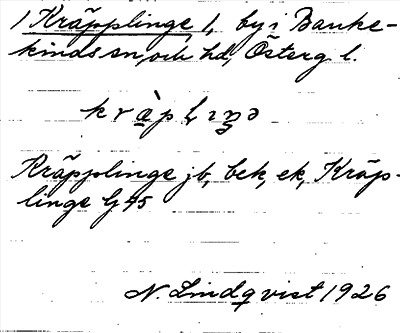 1 Kräpplinge 1, by i Banke-
kinds sn, och hd, Österg l.
kràpl̥ıŋə
Kräpplinge jb, bek, ek, Kräp-
linge G 45
N. Lindqvist 1926